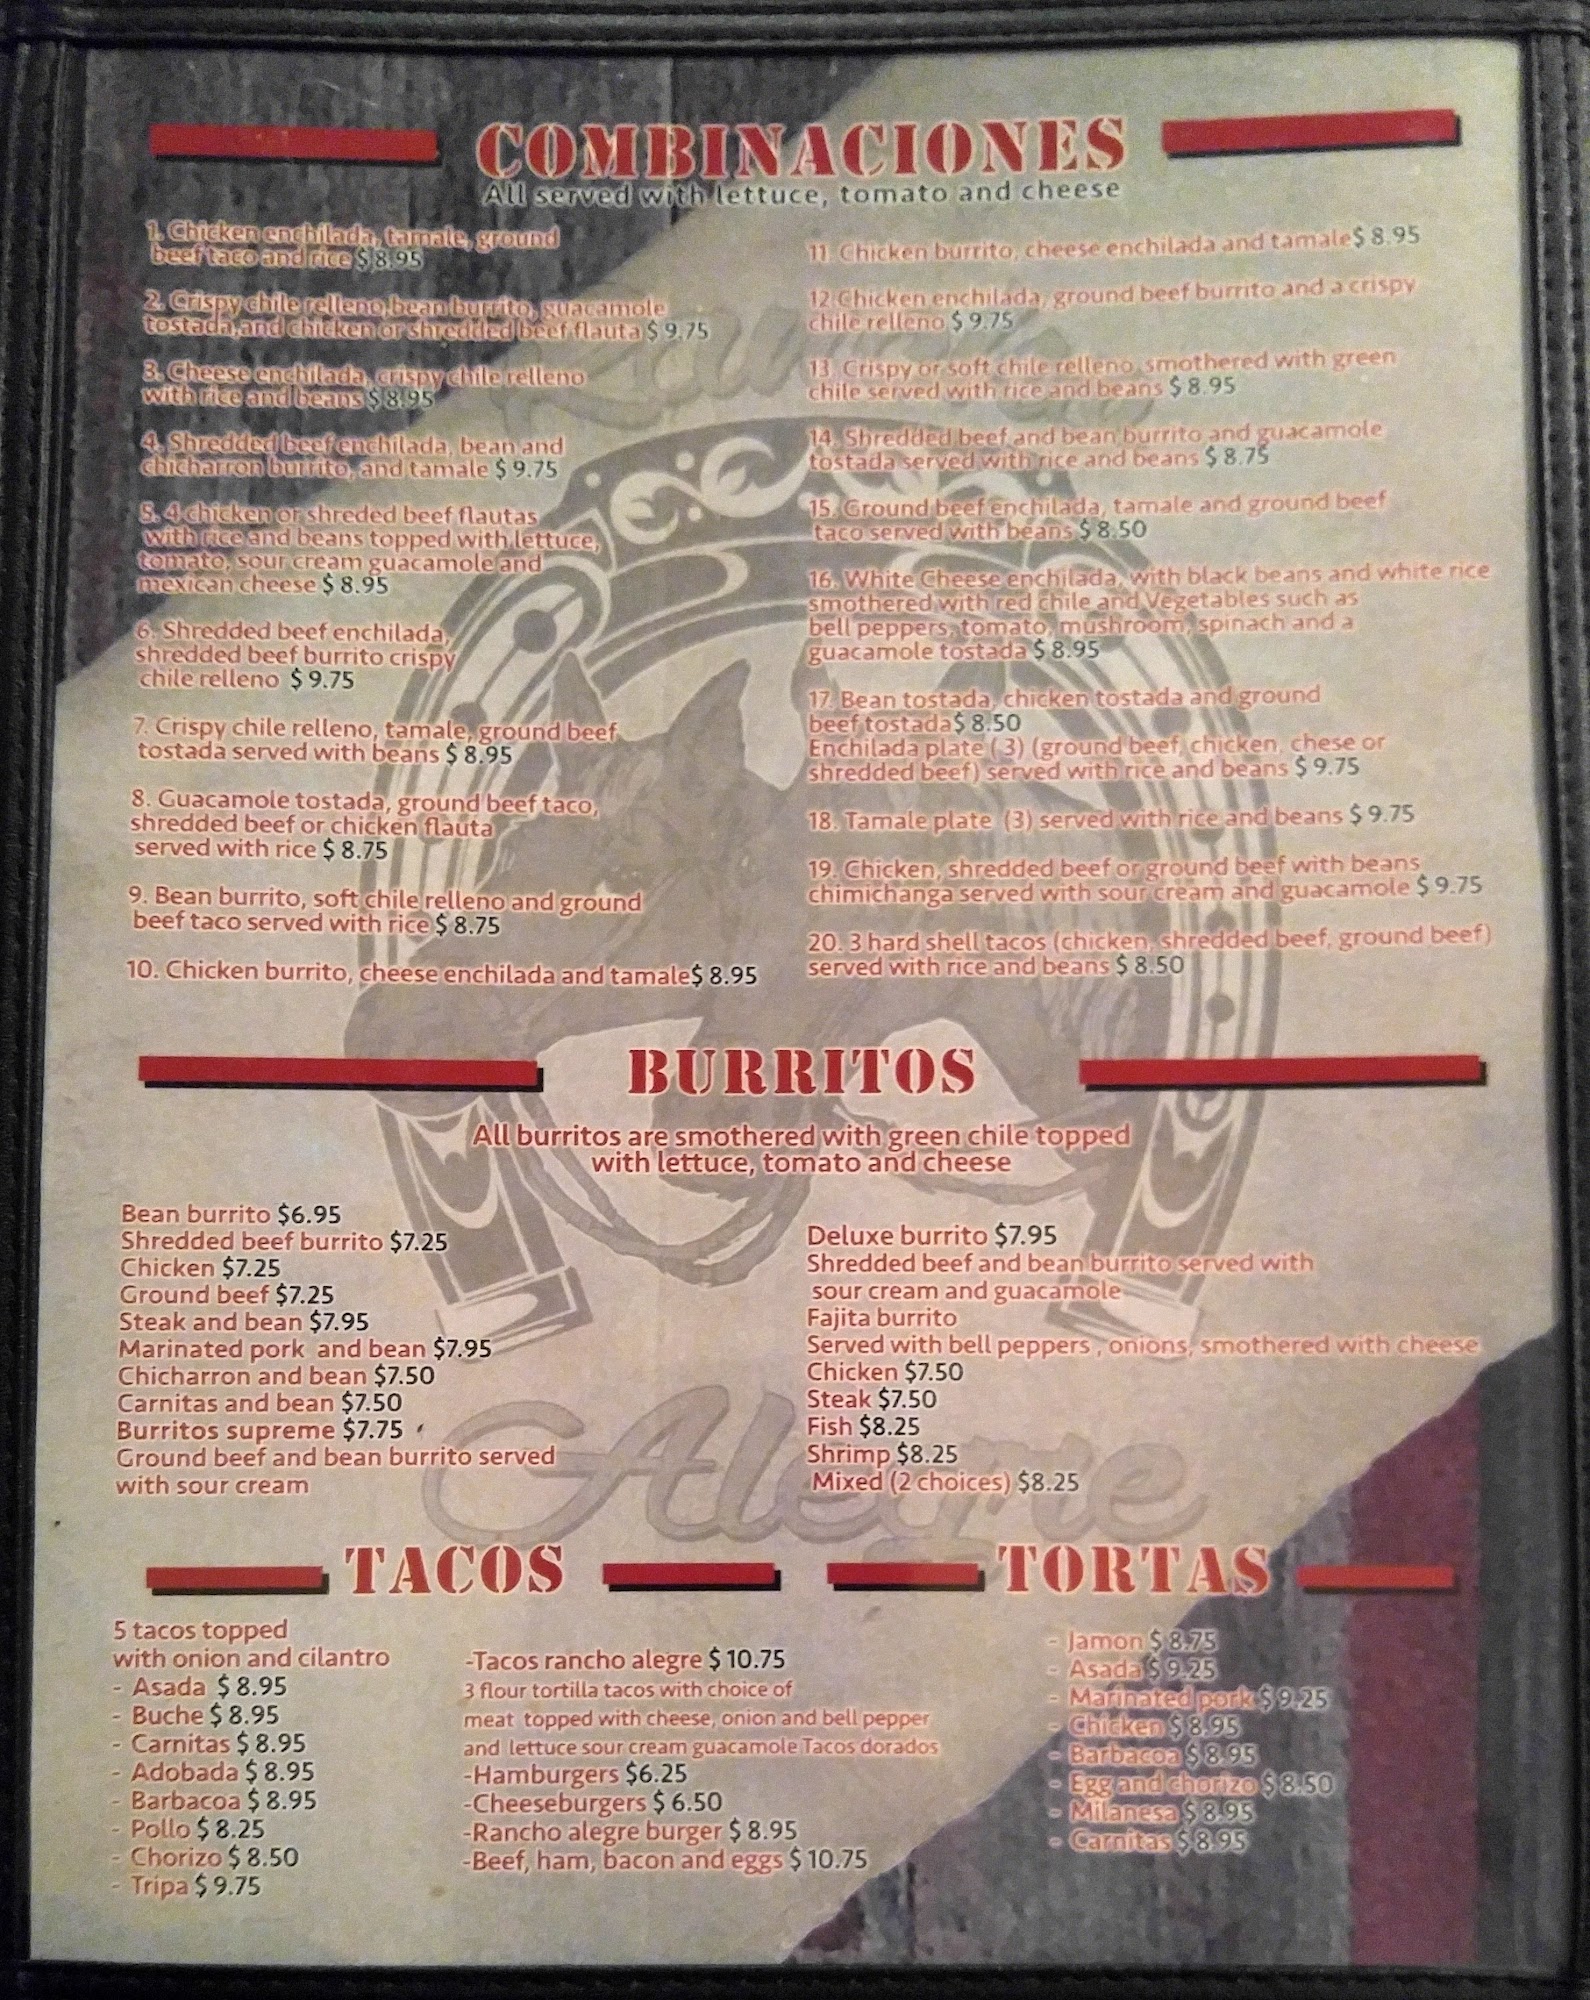 COMBINACIONES
All served with lettuce, tomato and cheese
1. Chicken enchilada, tamale, ground
beef taco and rice $ 8.95
2. Crispy chile relleno,bean burrito, guacamole
tostada,and chicken or shredded beef flauta $ 9.75
3. Cheese enchilada, crispy chile relleno
with rice and beans $ 8.95
4. Shredded beef enchilada, bean and
chicharron burrito, and tamale $ 9.75
5. 4 chicken or shreded beef flautas
with rice and beans topped with lettuce,
tomato, sour cream guacamole and
mexican cheese $ 8.95
6. Shredded beef enchilada,
shredded beef burrito crispy
chile relleno $ 9.75
7. Crispy chile relleno, tamale, ground beef
tostada served with beans $ 8.95
8. Guacamole tostada, ground beef taco,
shredded beef or chicken flauta
served with rice $ 8.75
9. Bean burrito, soft chile relleno and ground
beef taco served with rice $ 8.75
10. Chicken burrito, cheese enchilada and tamale$ 8.95
11. Chicken burrito, cheese enchilada and tamale$ 8.95
12.Chicken enchilada, ground beef burrito and a crispy
chile relleno $ 9.75
13. Crispy or soft chile relleno, smothered with green
chile served with rice and beans $ 8.95
14. Shredded beef and bean burrito and guacamole
tostada served with rice and beans $ 8.75
15. Ground beef enchilada, tamale and ground beef
taco served with beans $ 8.50
16. White Cheese enchilada, with black beans and white rice
smothered with red chile and Vegetables such as
bell peppers, tomato, mushroom, spinach and a
guacamole tostada $ 8.95
17. Bean tostada, chicken tostada and ground
beef tostada$ 8.50
Enchilada plate ( 3) (ground beef, chicken, chese or
shredded beef) served with rice and beans $ 9.75
18. Tamale plate (3) served with rice and beans $ 9.75
19. Chicken, shredded beef or ground beef with beans
chimichanga served with sour cream and guacamole $ 9.75
20. 3 hard shell tacos (chicken, shredded beef, ground beef)
served with rice and beans $ 8.50
BURRITOS
All burritos are smothered with green chile topped
with lettuce, tomato and cheese
Bean burrito $6.95
Shredded beef burrito $7.25
Chicken $7.25
Ground beef $7.25
Steak and bean $7.95
Marinated pork and bean $7.95
Chicharron and bean $7.50
Carnitas and bean $7.50
Burritos supreme $7.75
Ground beef and bean burrito served
with sour cream
Deluxe burrito $7.95
Shredded beef and bean burrito served with
sour cream and guacamole
Fajita burrito
Served with bell peppers , onions, smothered with cheese
Chicken $7.50
Steak $7.50
Fish $8.25
Shrimp $8.25
Mixed (2 choices) $8.25
Alegre
TACOS
5 tacos topped
with onion and cilantro
- Asada $ 8.95
- Buche $ 8.95
- Carnitas $ 8.95
- Adobada $ 8.95
- Barbacoa $ 8.95
- Pollo $ 8.25
- Chorizo $ 8.50
- Tripa $ 9.75
-Tacos rancho alegre $ 10.75
3 flour tortilla tacos with choice of
meat topped with cheese, onion and bell pepper
and lettuce sour cream guacamole Tacos dorados
-Hamburgers $6.25
-Cheeseburgers $ 6.50
-Rancho alegre burger $ 8.95
-Beef, ham, bacon and eggs $ 10.75
TORTAS
- Jamon $ 8.75
- Asada $ 9.25
- Marinated pork $ 9.25
- Chicken $ 8.95
- Barbacoa $ 8.95
- Egg and chorizo $ 8.50
- Milanesa $ 8.95
- Carnitas $ 8.95